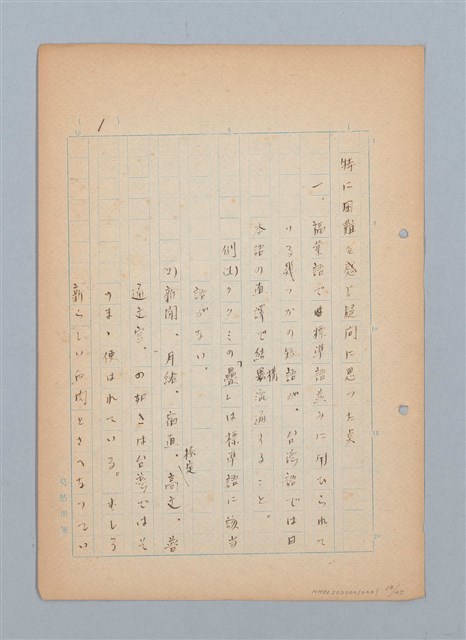 1
特に困難を感じ疑問に思つた点
一、福業語では標準語並みに用ひられて
いる幾つかの短語が、台湾語では日
本語の直譯で結構流通すること。
例(1)タタミの「疊」は標準語に該当
語がない。
(2)新聞、月給、宿直、高文、普
通文官、の如きは台湾ではそ
のまゝ使はれている。むしろ
新らしい新聞ときへなつてい